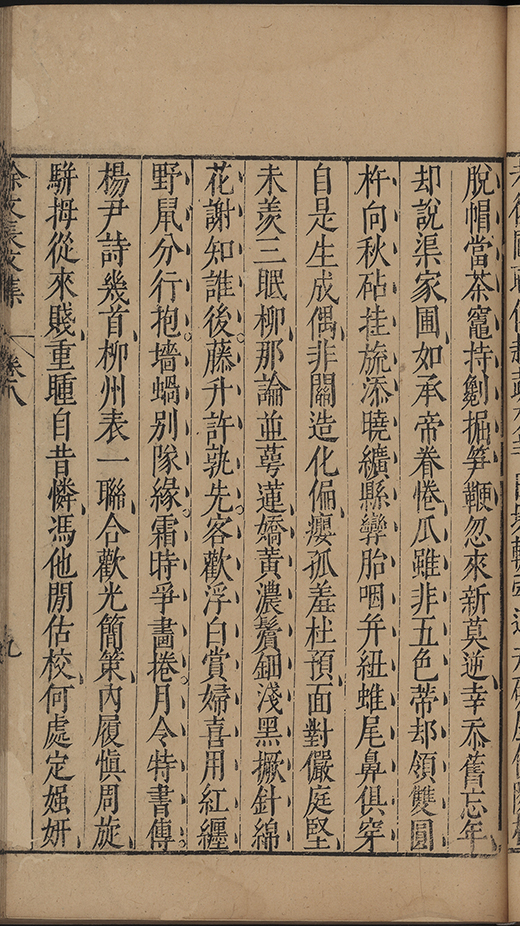 脫帽當茶竈持劖掘筍鞭忽來新莫逆幸忝舊忘年
却說渠家圃如承帝眷惓瓜雖非五色蒂却領雙圓
杵向秋砧挂旒添曉纊縣孿胎咽并紐雌尾鼻俱穿
自是生成偶非關造化偏癭孤羞杜預面對儼庭堅
未羨三眠柳那論並蕚蓮嬌黃濃鬢鈿淺黑撅針綿
花謝知誰後藤升許孰先客歡浮白賞婦喜用紅纏
野鼠分行抱墻蝸別隊緣霜時爭畫捲月令特書傳
楊尹詩幾首柳州表一聯合歡光簡策內履愼周旋
駢拇從來賤重腫自昔憐馮他閒估校何處定媸姸
徐文長文集 卷八 九